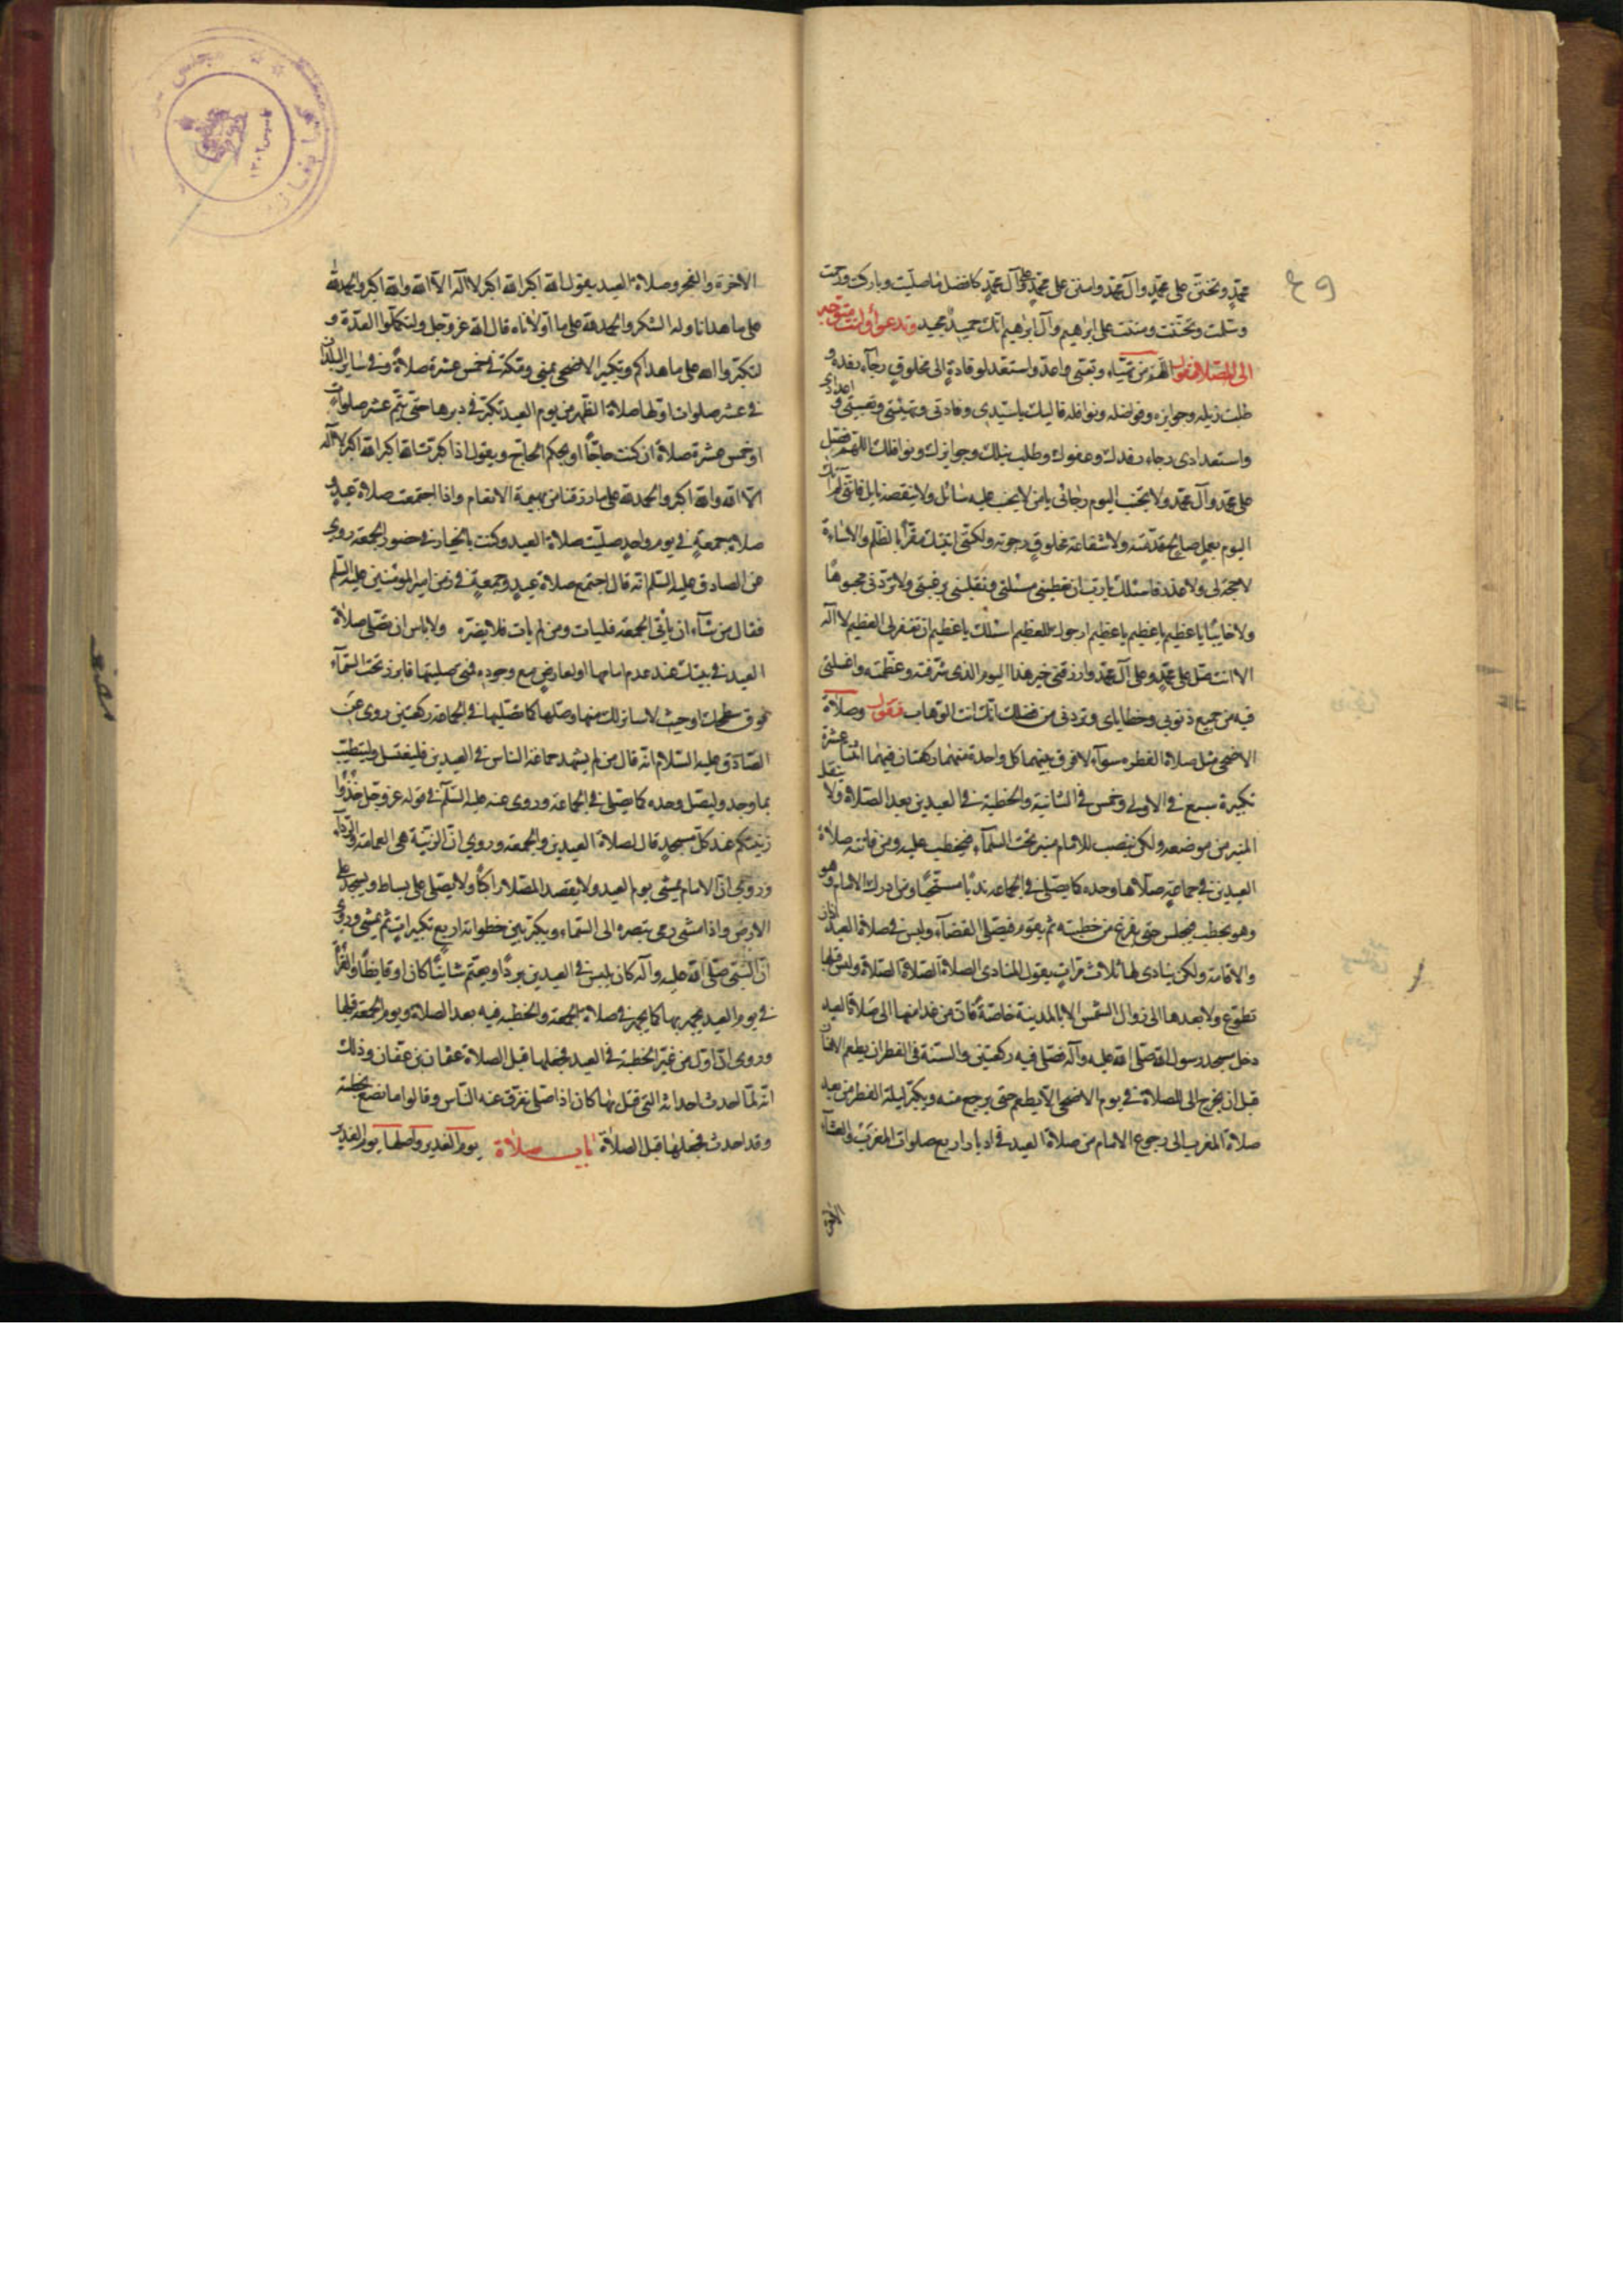 ٤٩
محمّدٍ وتحنّن على محمّدٍ وآل محمّد وامنن على محمّدٍ وعلى آل محمّدٍ كافضل ما صلّيت وباركت ورحمت
وسلمت وتحنّنت ومننت على ابرٰهيم وآل ابرٰهيم انّك حميدٌ مجيد وتدعو وانت متوجّه
الى المصلّا فتقول اللّهم من تهيّاء وتعبّى واعدّ واستعدّ لوفادةٍ الى مخلوقٍ رجآء رفده و
طلب نيله وجوايزه وفواضله ونوافله فاليك ياسيّدى وفادتى وتهيئتى وتعبيتى و اعدادى
واستعدادى رجاء رفدك وعفوك وطلب نيلك وجوايزك ونوافلك اللهم فصلّ
على محمّد وآل محمّد ولا تخيّب اليوم رجائى يامن لا يخيب عليه سائل ولا ينقصه نايل فانّى لم آتك
اليوم بعملٍ صالح قدّمته ولا شفاعة مخلوقٍ رجوته ولكنّى اتيتك مقرّاً بالظّلم والاساءة
لا حجة لى ولا عذر فاسئلك يارب ان تعطينى مسئلتى وتقلبنى برغبتى ولا تردّنى مجبوهًا
ولا خايبًا يا عظيم يا عظيم يا عظيم ارجوك للعظيم اسئلك يا عظيم ان تغفر لى العظيم لا آله
الا انت صلّ على محمّدٍ وعلى آل محمّد وارزقنى خير هذا اليوم الذى شرّفته وعظّمته واغسلنى
فيه من جميع ذنوبى وخطاياى وزدنى من فضلك انّك انت الوهّاب فتقول وصلاة
الاضحى مثل صلاة الفطر سوآء لا فرق بينهما كل واحدة منهما ركعتان فيهما اثنتا عشرة
تكبيرة سبع فى الاولى وخمس فى الثانية والخطبة فى العيدين بعد الصّلاة ولا ينقل
المنبر من موضعه ولكن ينصب للامام منبر تحت السّمآء فيخطب عليه ومن فاتته صلاة
العيدين فى جماعةٍ صلّاها وحده كما يصلّى فى الجماعة ندبًا مستحبًّا ومن ادرك الامام وهو
وهو يخطب فيجلس حتى يفرغ من خطبته ثم يقوم فيصلّى القضآء وليس فى صلاة العيد اذان
والاقامة ولكن ينادى لها ثلاث مرّاتٍ يقول المنادى الصلاة الصّلاة الصّلاة وليس قبلها
تطوّع ولا بعدها الى زوال الشمس الا بالمدينة خاصّة فان من غدا منها الى صلاة العيد
دخل مسجد رسول الله صلّى الله عليه وآله فصلّى فيه ركعتين والسّنة فى الفطر ان يطعم الانسان
قبل ان يخرج الى الصلاة فى يوم الاضحى الا يطعم حتى يرجع منه ويكبّر ليلة الفطر من بعد
صلاة المغرب الى رجوع الامام من صلاة العيد فى ادبار اربع صلوات المغرب والعشآء
الاخرة
الاخرة والفجر وصلاة العيد يقول الله اكبر الله اكبر لا اله الّا الله والله اكبر والحمد لله
على ما هدانا وله الشكر والحمد لله على ما اولانا قال الله عز وجل ولتكملوا العدّة و
لتكبّروا الله على ما هداكم وتكبير الاضحى بمنى ومكة فى خمس عشرة صلاةً وفى ساير البلدان
فى عشر صلوات اوّلها صلاة الظّهر من يوم العيد تكبّر فى دبرها حتى يتمّ عشر صلواتٍ
او خمس عشرة صلاة ان كنت حاجًّا او بحكم الحاج ويقول اذا كبّرت الله اكبر الله اكبر لا آله
الّا الله والله اكبر والحمد لله على ما رزقنا من بهيمة الانعام واذا اجتمعت صلاة عيدٍ و
صلاة جمعةٍ فى يومٍ واحدٍ صلّيت صلاة العيد وكنت بالخيار فى حضور الجمعة روى
عن الصادق عليه السّلم انّه قال اجتمع صلاة عيدٍ وجمعةٍ فى زمن امير المؤمنين عليه السّلم
فقال من شآء ان يأتى الجمعة فليات ومن لم يات فلا يضرّه ولا باس ان تصلّى صلاة
العيد فى بيتك عند عدم امامها او لعارضٍ مع وجوده فمتى صليتها فابرز تحت السّمآء
فوق سطحك او حيث لا ساتر لك منها وصلّها كما تصليها فى الجماعة ركعتين روى عن
الصّادق عليه السّلام انّه قال من لم يشهد جماعة الناس فى العيدين فليغتسل وليتطيّب
بما وجد وليصل وحده كما يصلى فى الجماعة وروى عنه عليه السّلم فى قوله عز وجل خذوا
زينتكم عند كل مسجدٍ قال لصلاة العيدين والجمعة وروي انّ الزّينة هى العمامة والرّداء
وروى انّ الامام يمشى يوم العيد ولا يقصد المصّلا راكبًا ولا يصلّى على بساط ويسجد على
الارض واذا مشى رمى ببصره الى السّماء ويكبّر بين خطواته اربع تكبيراتٍ ثم يمشى وروى
انّ النّبى صلّى الله عليه وآله كان يلبس فى العيدين بردًا ويعتم شاتيًا كان او قايظًا والقراءة
فى يوم العيد يجهر بها كما يجهر فى صلاة الجمعة والخطبة فيه بعد الصّلاة ويوم الجمعة قبلها
وروى انّ اوّل من غيّر الخطبة فى العيد فجعلها قبل الصلاة عثمان بن عفّان وذلك
انه لمّا احدث احداثه التى قتل بها كان اذا صلّى تفرّق عنه النّاس وقالوا ما نصنع بخطبته
وقد احدث فجعلها قبل الصّلاة باب صلاة يوم الغدير واصلها يوم الغدير